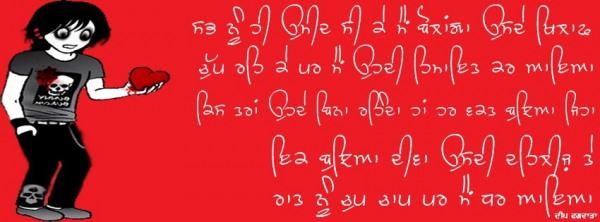 ਸਭ ਨੂੰ ਹੀ ਉਮੀਦ ਸੀ ਕੇ ਮੈਂ ਬੋਲਾਂਗਾ ਉਸਦੇ ਖਿਲਾਫ
ਚੁੱਪ ਰਹਿ ਕੇ ਪਰ ਮੈਂ ਉਹਦੀ ਹਿਮਾਇਤ ਕਰ ਆਇਆ
ਕਿਸ ਤਰਾਂ ਉਹਦੇ ਬਿਨਾ ਰਹਿੰਦਾ ਹਾਂ ਹਰ ਵਕਤ ਬੁਝਿਆ ਜਿਹਾ
ਇਕ ਬੁਝਿਆ ਦੀਵਾ ਉਸਦੀ ਦਹਿਲੀਜ਼ ਤੇ
ਰਾਤ ਨੂੰ ਚੁਪ ਚਾਪ ਪਰ ਮੈਂ ਧਰ ਆਇਆ
ਦੀਪ